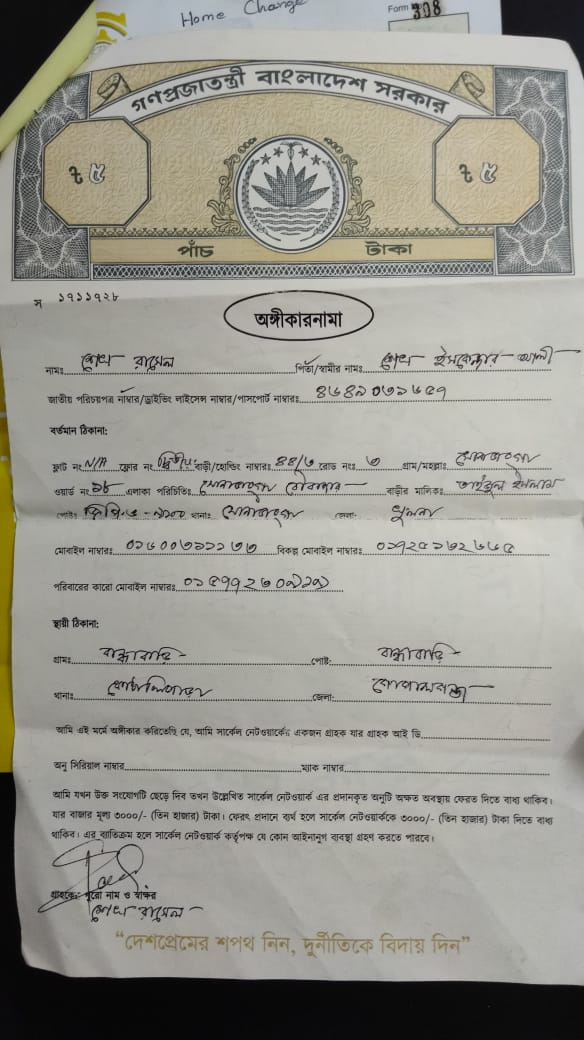 Home Change
Form 308
গণপ্রজাতন্ত্রী বাংলাদেশ সরকার
৳ ৫ ৳ ৫
পাঁচ টাকা
স ১৭১১৭২৮
অঙ্গীকারনামা
নামঃ শেখ রাসেল পিতা/স্বামীর নামঃ শেখ ইসকেন্দার আলী
জাতীয় পরিচয়পত্র নাম্বার/ড্রাইভিং লাইসেন্স নাম্বার/পাসপোর্ট নাম্বারঃ
বর্তমান ঠিকানা:
ফ্লাট নং N/A ফ্লোর নং দ্বিতীয় বাড়ী/হোল্ডিং নাম্বারঃ ৪৪/৬ রোড নংঃ ৩ গ্রাম/মহল্লাঃ সোনাডাঙ্গা
ওয়ার্ড নং ১৮ এলাকা পরিচিতিঃ সোনাডাঙ্গা বৌবাজার বাড়ীর মালিকঃ তাইজুল ইসলাম
পোষ্টঃ জিপিও - ৯১০০ থানাঃ সোনাডাঙ্গা জেলা: খুলনা
মোবাইল নাম্বারঃ বিকল্প মোবাইল নাম্বারঃ
পরিবারের কারো মোবাইল নাম্বারঃ
স্থায়ী ঠিকানা:
গ্রামঃ বান্ধাবাড়ি পোষ্ট: বান্ধাবাড়ি
থানাঃ কোটালিপাড়া জেলা: গোপালগঞ্জ
আমি এই মর্মে অঙ্গীকার করিতেছি যে, আমি সার্কেল নেটওয়ার্কের একজন গ্রাহক যার গ্রাহক আই ডি
অনু সিরিয়াল নাম্বার ম্যাক নাম্বার
আমি যখন উক্ত সংযোগটি ছেড়ে দিব তখন উল্লেখিত সার্কেল নেটওয়ার্ক এর প্রদানকৃত অনুটি অক্ষত অবস্থায় ফেরত দিতে বাধ্য থাকিব।
যার বাজার মূল্য ৩০০০/- (তিন হাজার) টাকা। ফেরৎ প্রদানে ব্যর্থ হলে সার্কেল নেটওয়ার্ককে ৩০০০/- (তিন হাজার) টাকা দিতে বাধ্য
থাকিব। এর ব্যতিক্রম হলে সার্কেল নেটওয়ার্ক কর্তৃপক্ষ যে কোন আইনানুগ ব্যবস্থা গ্রহণ করতে পারবে।
গ্রাহকের পুরো নাম ও স্বাক্ষর
শেখ রাসেল
“দেশপ্রেমের শপথ নিন, দুর্নীতিকে বিদায় দিন”